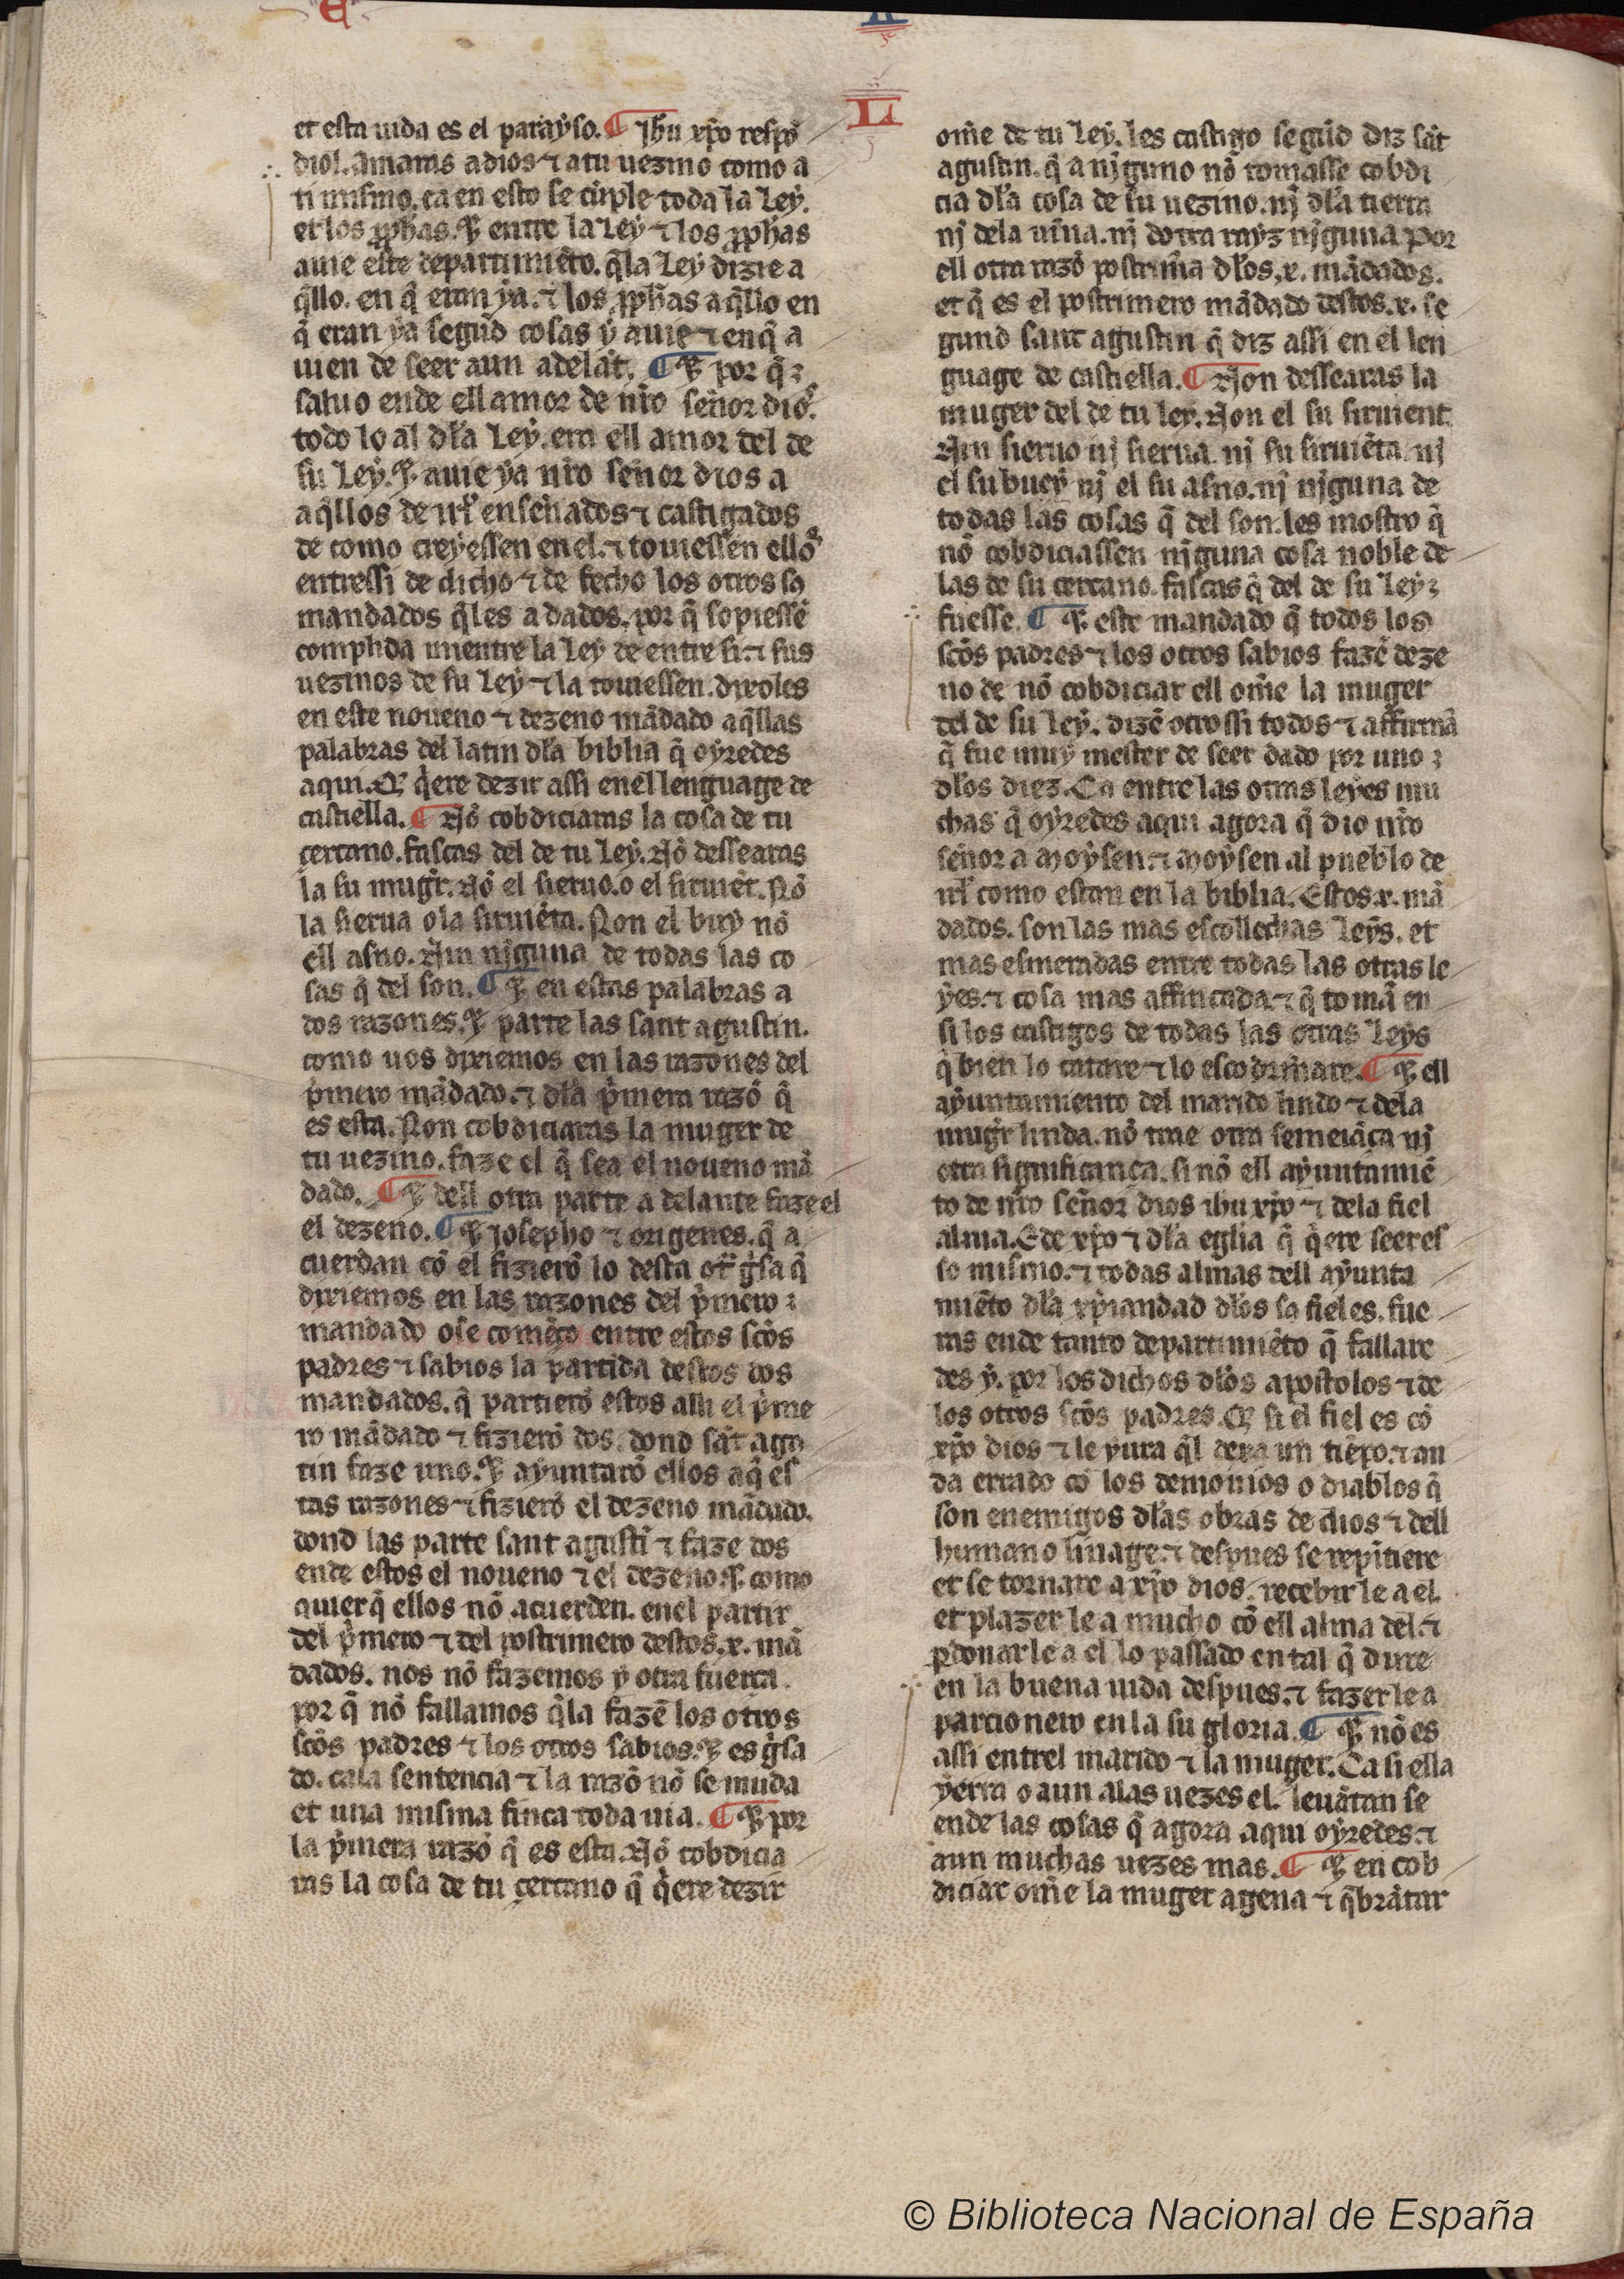 L
et esta uida es el parayso. ¶ Jhu xpo respõ
diol. Amaras a dios ⁊ a tu uezino como a
ti mismo. ca en esto se cũple toda la Ley.
et los pphas. ⁊ entre la Ley ⁊ los pphas
auie este departimiẽto. q̃la Ley dizie a
q̃llo. en q̃ eran ya. ⁊ los pphas aq̃llo en
q̃ eran ya segũd cosas y auie ⁊ en q̃ a
uien de seer aun adelãt. ¶ ⁊ por q̃
saluo ende ell amor de nr̃o señor dios.
todo lo al dl̃a Ley. era ell amor del de
su Ley. ⁊ auie ya nr̃o señor dios a
aq̃llos de irl̃ enseñados ⁊ castigados
de como creyessen en el. ⁊ touiessen ellos
entressi de dicho ⁊ de fecho los otros so
mandados q̃les a dados. por q̃ sopiessẽ
complida mientre la Ley de entre si. ⁊ sus
uezinos de su Ley ⁊ la touiessen. dixoles
en este noueno ⁊ dezeno mãdado aq̃llas
palabras del latin dl̃a biblia q̃ oyredes
aqui. Q̃ q̃ere dezir assi en el lenguage de
castiella. ¶ Nõ cobdiciaras la cosa de tu
cercano. fascas del de tu Ley. Nõ dessearas
la su mugr̃. Nõ el sieruo. o el siruiẽt. Nõ
la sierua o la siruiẽta. Non el buy nõ
ell asno. Nin nj̃guna de todas las co
sas q̃ del son. ¶ ⁊ en estas palabras a
dos razones. ⁊ parte las sant agustin.
como uos dixiemos en las razones del
p̃mero mãdado. ⁊ dl̃a p̃mera razõ q̃
es esta. Non cobdiciaras la muger de
tu uezino. faze el q̃ sea el noueno mã
dado. ¶ ⁊ dell otra parte a delante faze el
el dezeno. ¶ ⁊ Josepho ⁊ origenes. q̃ a
cuerdan cõ el fizierõ lo desta ot̃ g̃sa q̃
dixiemos en las razones del p̃mero
mandado o se comẽço entre estos sc̃os
padres ⁊ sabios la partida destos dos
mandados. q̃ partierõ estos alli el p̃me
ro mãdado ⁊ fizierõ dos. dond sãt agus
tin faze uno. ⁊ ayuntarõ ellos aq̃ es
tas razones ⁊ fizierõ el dezeno mãdado.
dond las parte sant agustĩ ⁊ faze dos
ende estos el noueno ⁊ el dezeno. ⁊ como
quier q̃ ellos nõ acuerden. en el partir
del p̃mero ⁊ del postrimero destos .x. mã
dados. nos nõ fazemos y otra fuerça.
por q̃ nõ fallamos q̃la fazẽ los otros
sc̃os padres ⁊ los otros sabios. ⁊ es g̃sa
do. ca la sentencia ⁊ la razõ nõ se muda
et una misma finca toda uia. ¶ ⁊ por
la p̃mera razõ q̃ es esta. Nõ cobdicia
ras la cosa de tu cercano q̃ q̃ere dezir
om̃e de tu Ley. les castigo segũd diz sãt
agustin. q̃ a nj̃guno nõ tomasse cobdi
cia dl̃a cosa de su uezino. nj dl̃a tierra
nj dela uiña. nj dotra rayz nj̃guna por
ell otra razõ postrim̃a dl̃os .x. mãdados.
et q̃ es el postrimero mãdado destos .x. se
gund sant agustin q̃ diz assi en el len
guage de castiella. ¶ Non dessearas la
muger del de tu ley. Non el su siruient.
Nin sieruo nj sierua. nj su siruiẽta. nj
el su buey nj el su asno. nj nj̃guna de
todas las cosas q̃ del son. les mostro q̃
nõ cobdiciassen nj̃guna cosa noble de
las de su cercano. fascas q̃ del de su Ley
fuesse. ¶ ⁊ este mandado q̃ todos los
sc̃os padres ⁊ los otros sabios fazẽ deze
no de nõ cobdiciar ell om̃e la muger
del de su Ley. dizẽ otrossi todos ⁊ affirmã
q̃ fue muy mester de seer dado por uno
dl̃os diez. Ca entre las otras leyes mu
chas q̃ oyredes aqui agora q̃ dio nr̃o
señor a moysen. ⁊ moysen al pueblo de
irl̃ como estan en la biblia. Estos .x. mã
dados. son las mas escollechas leys. et
mas esmeradas entre todas las otras le
yes. ⁊ cosa mas affincada. ⁊ q̃ tomã en
si los castigos de todas las otras Leys
q̃ bien lo catare ⁊ lo escodrinnare. ¶ ⁊ ell
ayuntamiento del marido lindo ⁊ dela
mugr̃ linda. nõ tine otra semeiãça nj
otra significança. si nõ ell ayuntamiẽ
to de nr̃o señor dios ihu xpo ⁊ dela fiel
alma. E de xpo ⁊ dl̃a eglia q̃ q̃ere seer es
so mismo. ⁊ todas almas dell ayunta
miẽto dl̃a xp̃iandad dl̃os sã fieles. fue
ras ende tanto departimiẽto q̃ fallare
des y. por los dichos dl̃os apostolos ⁊ de
los otros sc̃os padres. Q̃ si el fiel es cõ
xpo dios ⁊ le yura q̃l dexa un tiẽpo. ⁊ an
da errado cõ los demonios o diablos q̃
son enemigos dl̃as obras de dios ⁊ dell
humano linage. ⁊ despues se repĩtiere
et se tornare a xpo dios. recebir le a el.
et plazer le a mucho cõ ell alma del. ⁊
p̃donar le a el lo passado en tal q̃ dure
en la buena uida despues. ⁊ fazer le a
parcionero en la su gloria. ¶ ⁊ nõ es
assi entrel marido ⁊ la muger. Ca si ella
yerra o aun alas uezes el. leuãtan se
ende las cosas q̃ agora aqui oyredes. ⁊
aun muchas uezes mas. ¶ ⁊ en cob
diciar om̃e la muger agena ⁊ q̃brãtar
© Biblioteca Nacional de España